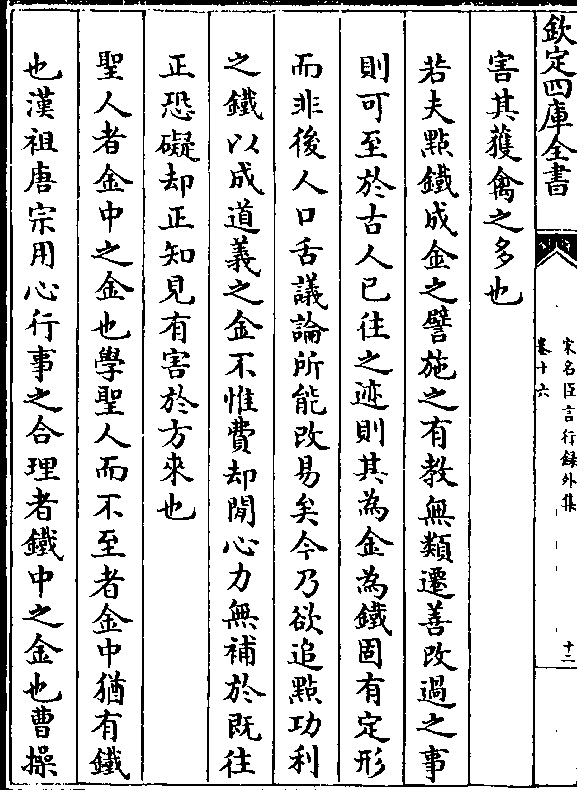 欽定四庫全書
宋名臣言行録外集
卷十六
十二
害其獲禽之多也
若夫點鐵成金之譬施之有教無類遷善改過之事
則可至於古人已往之迹則其為金為鐵固有定形
而非後人口舌議論所能改易矣今乃欲追點功利
之鐵以成道義之金不惟費却閒心力無補於既往
正恐礙却正知見有害於方來也
聖人者金中之金也學聖人而不至者金中猶有鐵
也漢祖唐宗用心行事之合理者鐵中之金也曹操